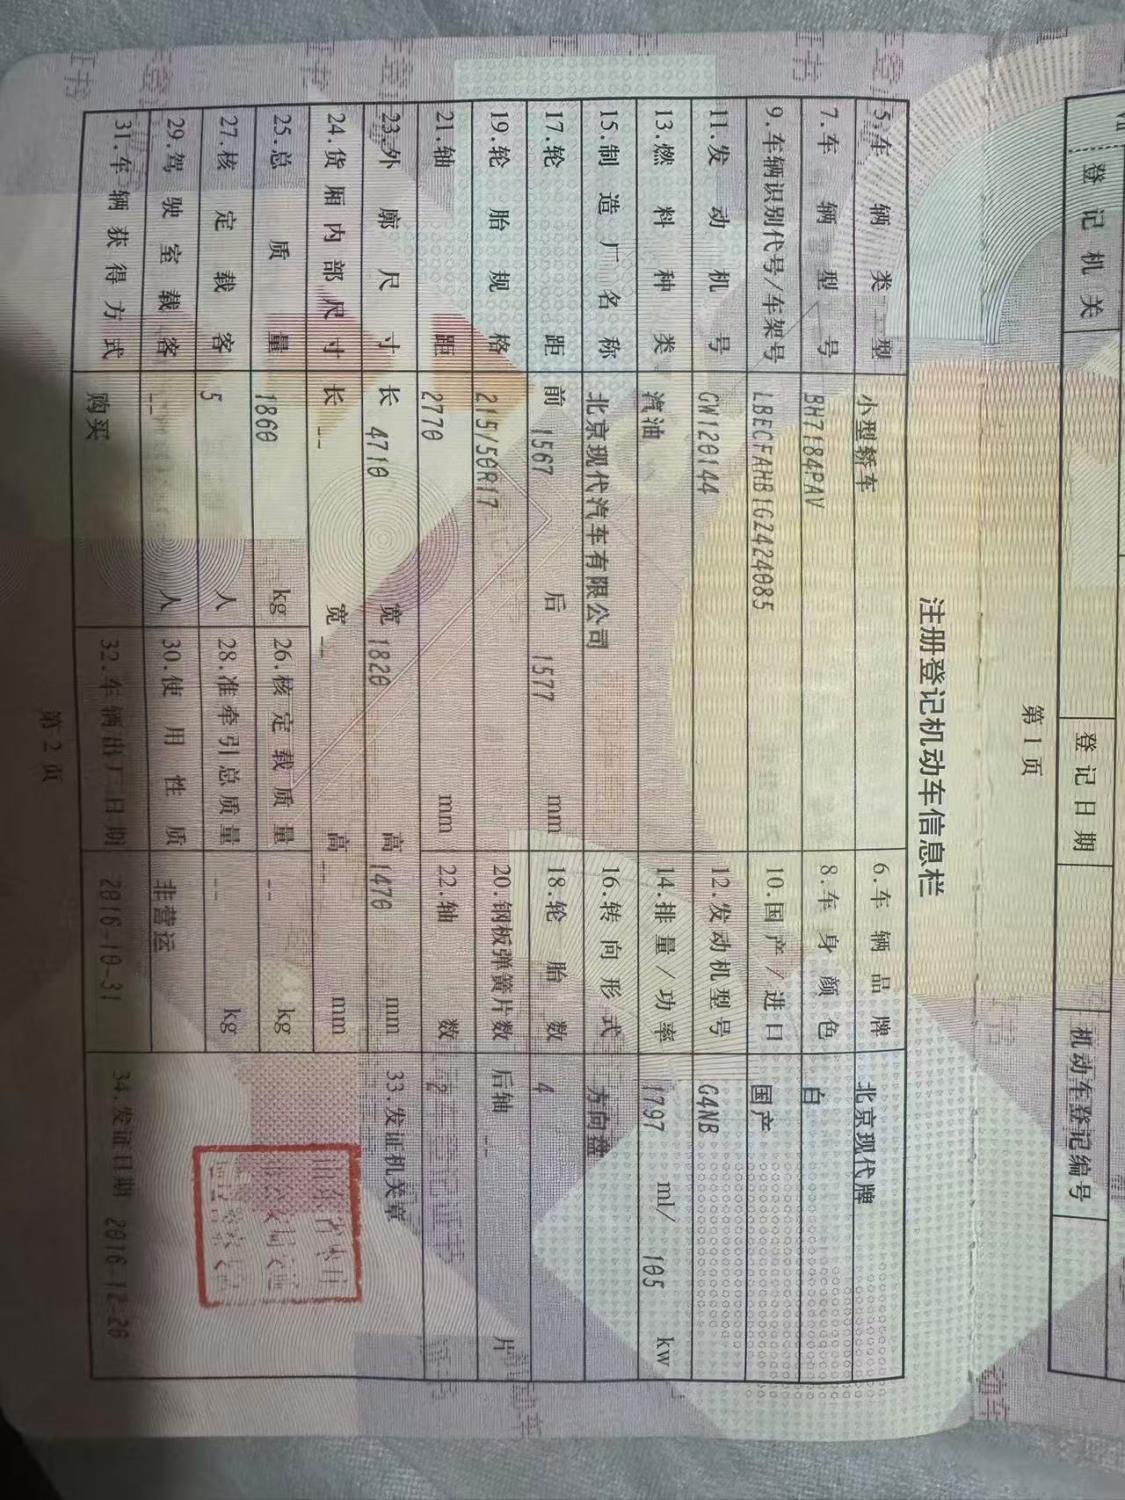 登记机关
登记日期
机动车登记编号
第1页
注册登记机动车信息栏
5.车辆类型 小型轿车 6.车辆品牌 北京现代牌
7.车辆型号 BH7184PAV 8.车身颜色 白
9.车辆识别代号/车架号 LBECFAHB1GZ424085 10.国产/进口 国产
11.发动机号 GW120144 12.发动机型号 G4NB
13.燃料种类 汽油 14.排量/功率 1797 ml/ 105 kw
15.制造厂名称 北京现代汽车有限公司 16.转向形式 方向盘
17.轮距 前 1567 后 1577 mm 18.轮胎数 4
19.轮胎规格 215/50R17 20.钢板弹簧片数 后轴 -- 片
21.轴距 2770 mm 22.轴数 2
23.外廓尺寸 长 4710 宽 1820 高 1470 mm 33.发证机关章
24.货厢内部尺寸 长 -- 宽 -- 高 -- mm
25.总质量 1860 kg 26.核定载质量 -- kg
27.核定载客 5 人 28.准牵引总质量 -- kg
29.驾驶室载客 -- 人 30.使用性质 非营运
31.车辆获得方式 购买 32.车辆出厂日期 2016-10-31 34.发证日期 2016-12-20
第2页